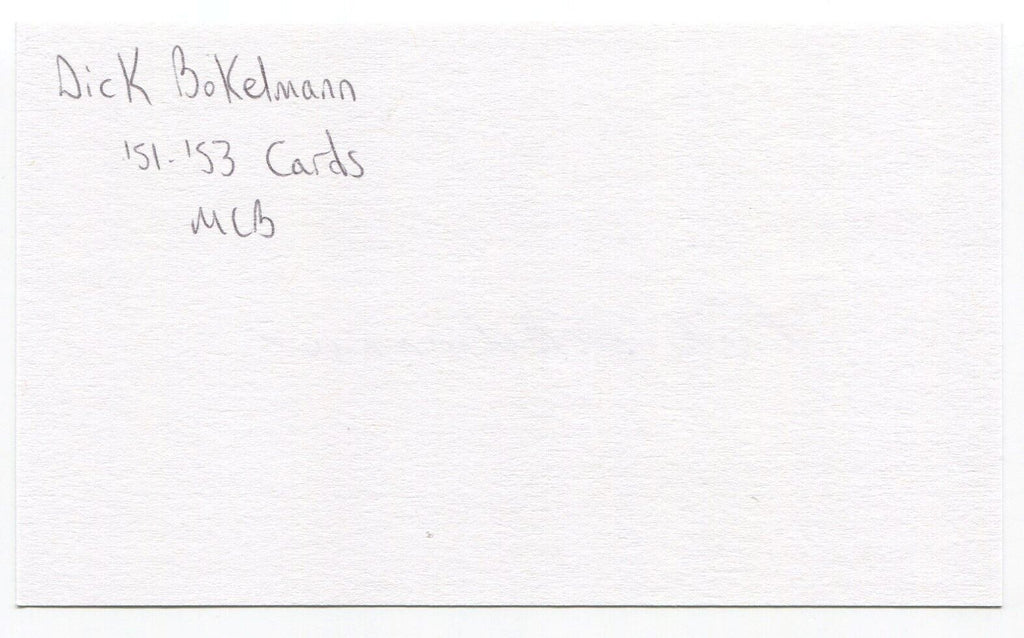 Dick Bokelmann
'51-'53 Cards
MCB